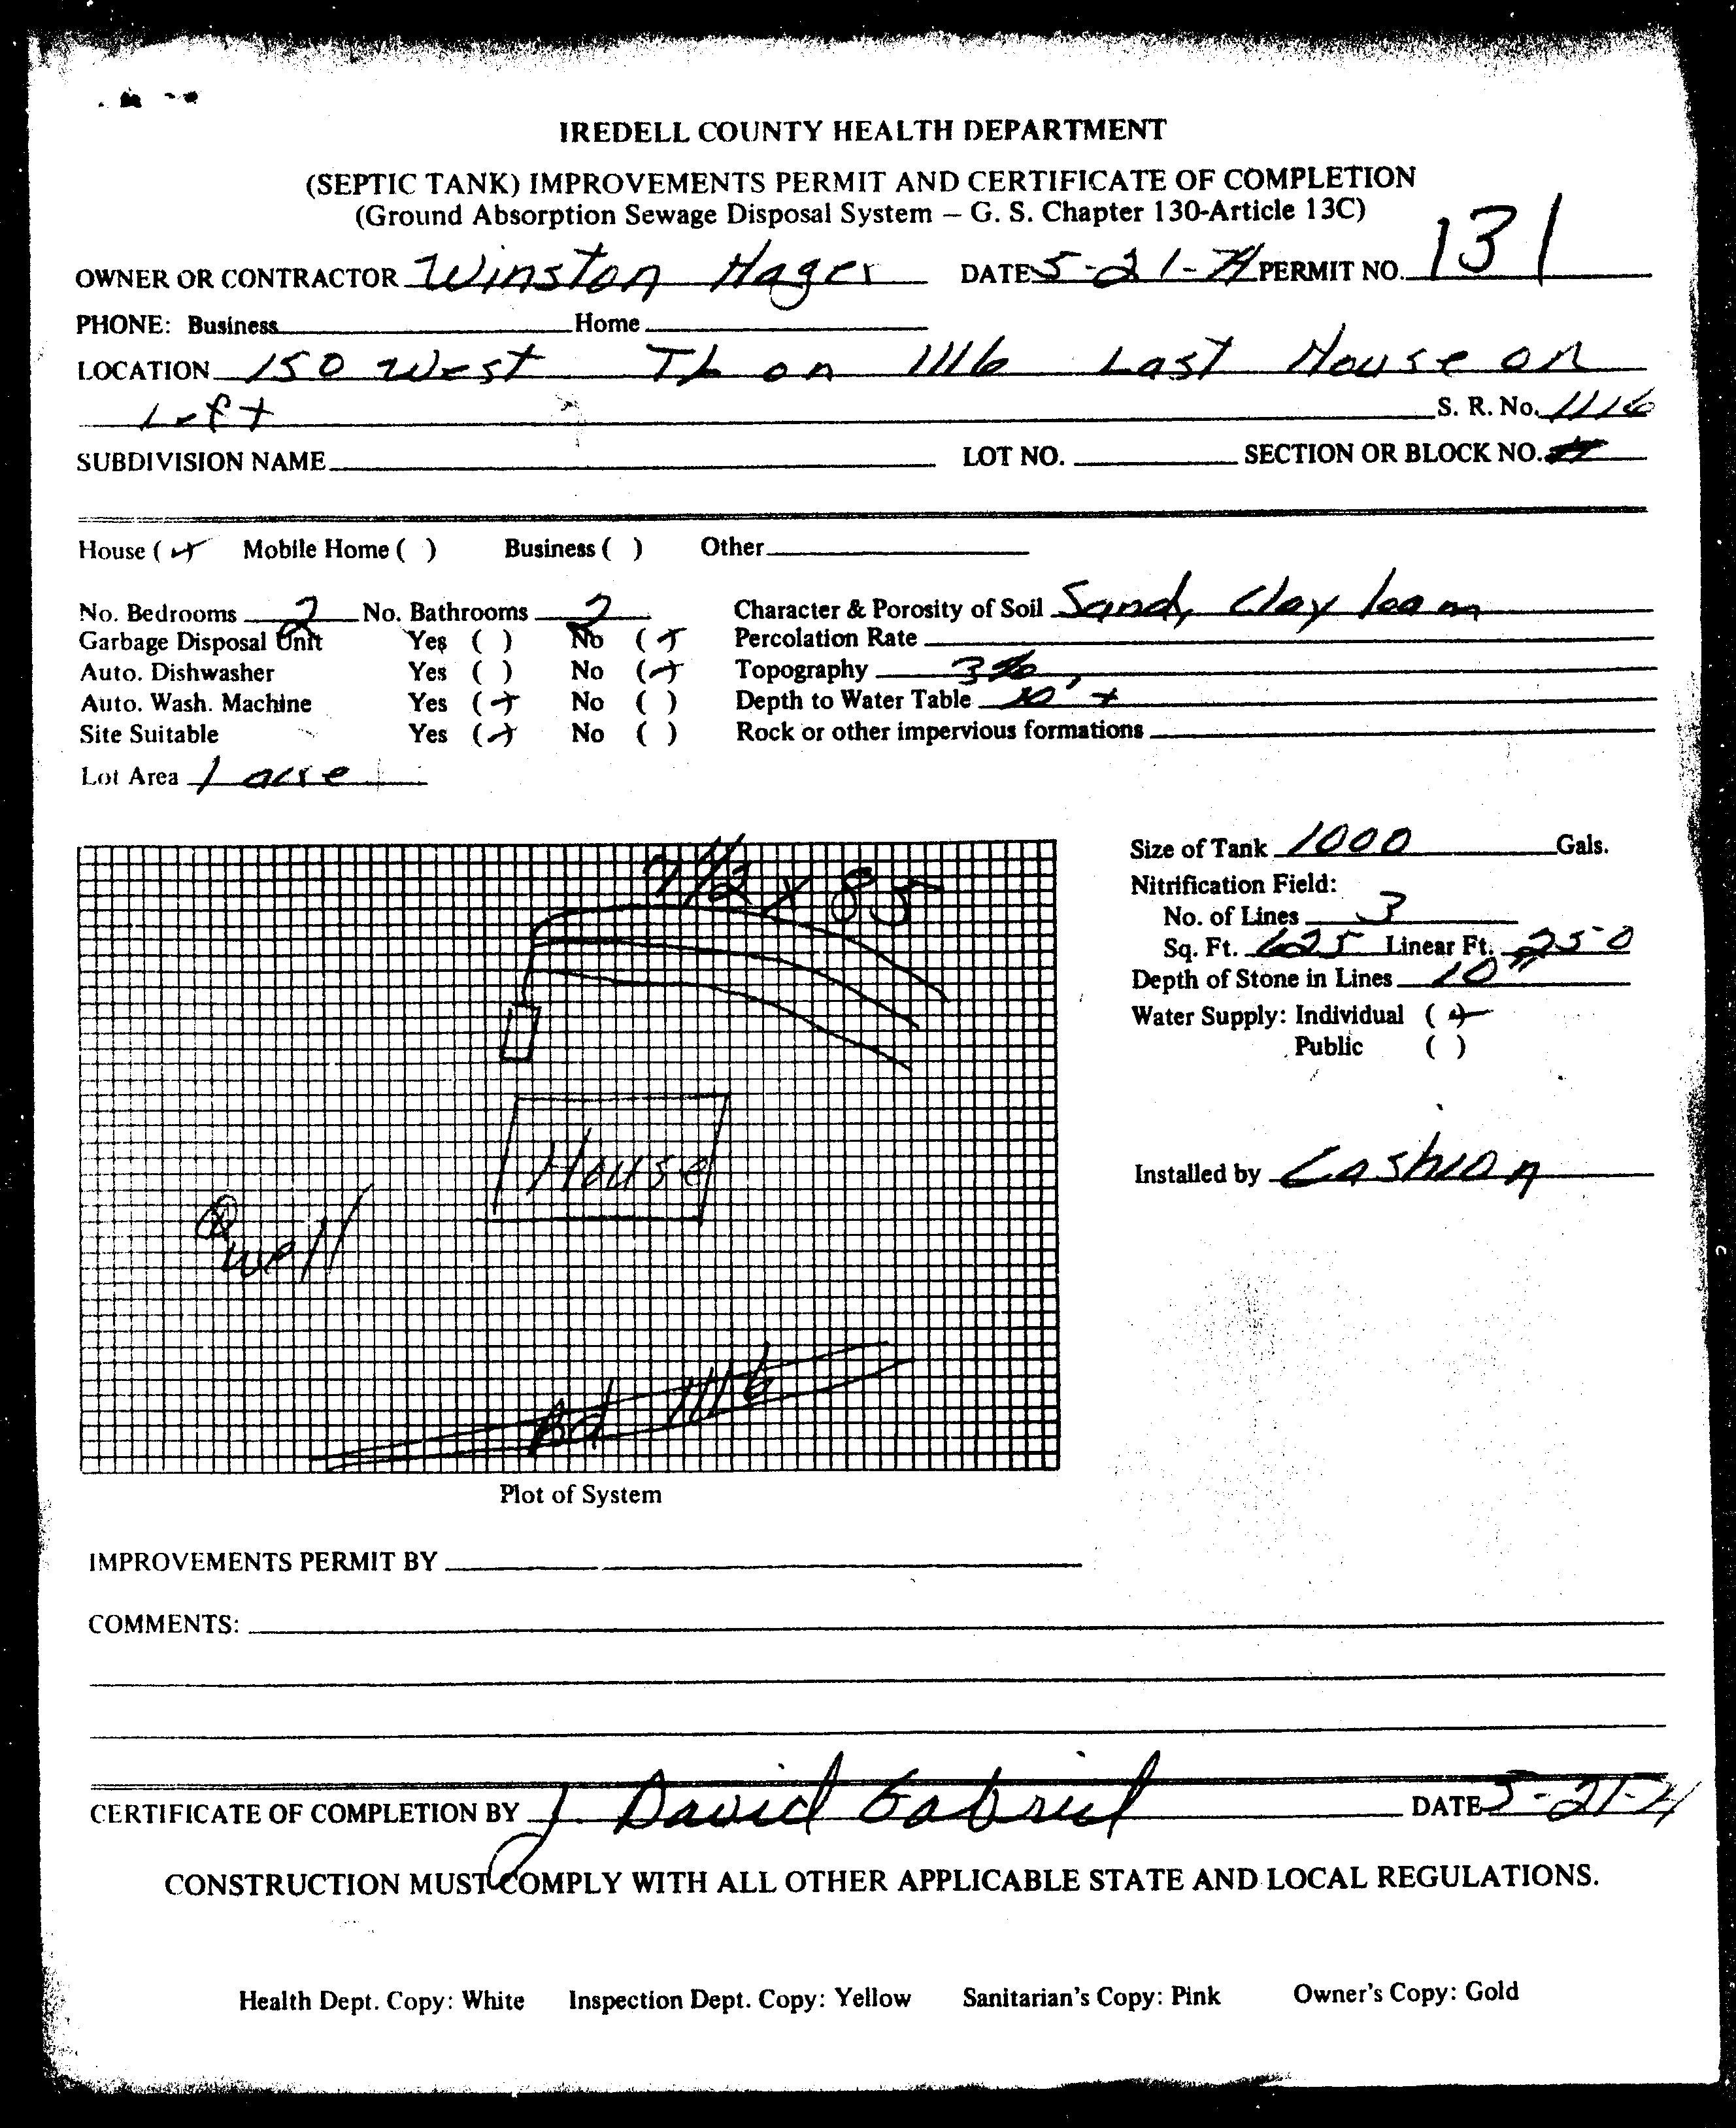 IREDELL COUNTY HEALTH DEPARTMENT
(SEPTIC TANK) IMPROVEMENTS PERMIT AND CERTIFICATE OF COMPLETION
(Ground Absorption Sewage Disposal System – G. S. Chapter 130-Article 13C)
OWNER OR CONTRACTOR Winston Hager DATE 5-21- PERMIT NO. 131
PHONE: Business Home
LOCATION 150 West TL on 1116 Last House on
Left S. R. No. 1116
SUBDIVISION NAME LOT NO. SECTION OR BLOCK NO.
House ( ) Mobile Home ( ) Business ( ) Other
No. Bedrooms 2 No. Bathrooms 2 Character & Porosity of Soil Sandy Clay loam
Garbage Disposal Unit Yes ( ) No ( ) Percolation Rate
Auto. Dishwasher Yes ( ) No ( ) Topography 3%
Auto. Wash. Machine Yes ( ) No ( ) Depth to Water Table 10' +
Site Suitable Yes ( ) No ( ) Rock or other impervious formations
Lot Area 1 acre
7 1/2 x 85
House
well
Rd 1116
Plot of System
Size of Tank 1000 Gals.
Nitrification Field:
No. of Lines 3
Sq. Ft. 625 Linear Ft. 250
Depth of Stone in Lines 10"
Water Supply: Individual ( )
Public ( )
Installed by Cashion
IMPROVEMENTS PERMIT BY
COMMENTS:
CERTIFICATE OF COMPLETION BY J. David Gabriel DATE 5-21-
CONSTRUCTION MUST COMPLY WITH ALL OTHER APPLICABLE STATE AND LOCAL REGULATIONS.
Health Dept. Copy: White Inspection Dept. Copy: Yellow Sanitarian's Copy: Pink Owner's Copy: Gold